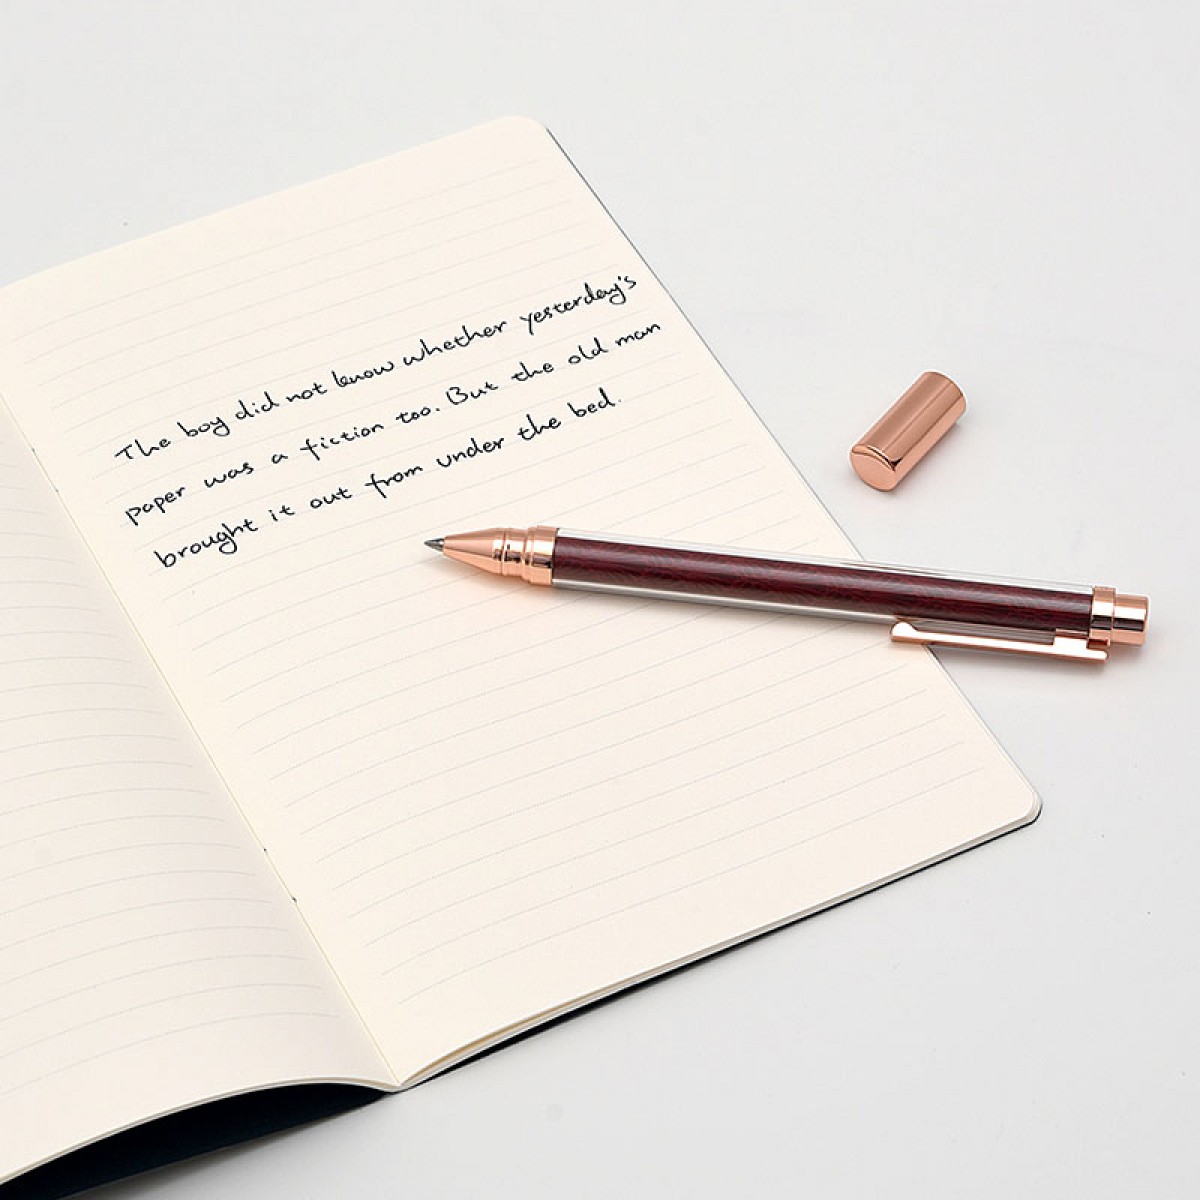 The boy did not know whether yesterday's
paper was a fiction too. But the old man
brought it out from under the bed.